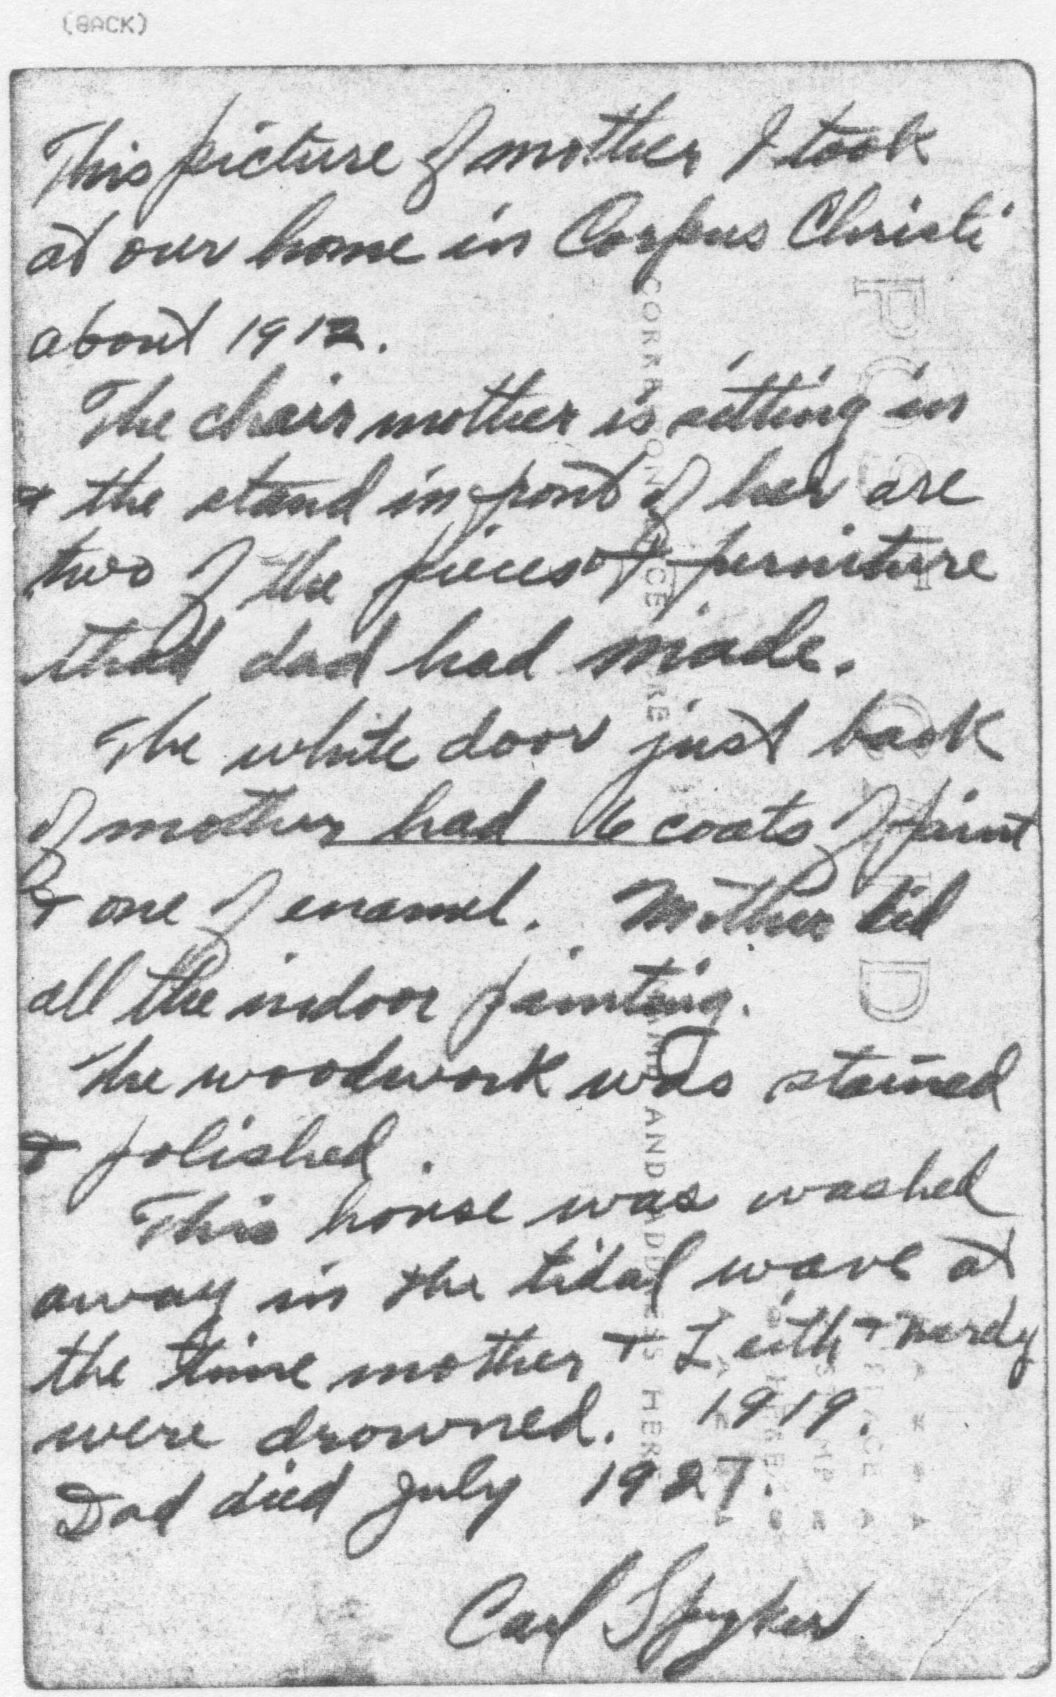 (BACK)
This picture of mother I took
at our home in Corpus Christi
about 1912.
The chair mother is sitting in
& the stand in front of her are
two of the pieces of furniture
that dad had made.
The white door just back
of mother had 6 coats of paint
& one of enamel. Mother did
all the indoor painting.
The woodwork was stained
& polished.
This house was washed
away in the tidal wave at
the time mother & Leith & Mardy
were drowned. 1919.
Dad died July 1927.
Carl Spyker
POST CARD
CORRESPONDENCE HERE
NAME AND ADDRESS HERE